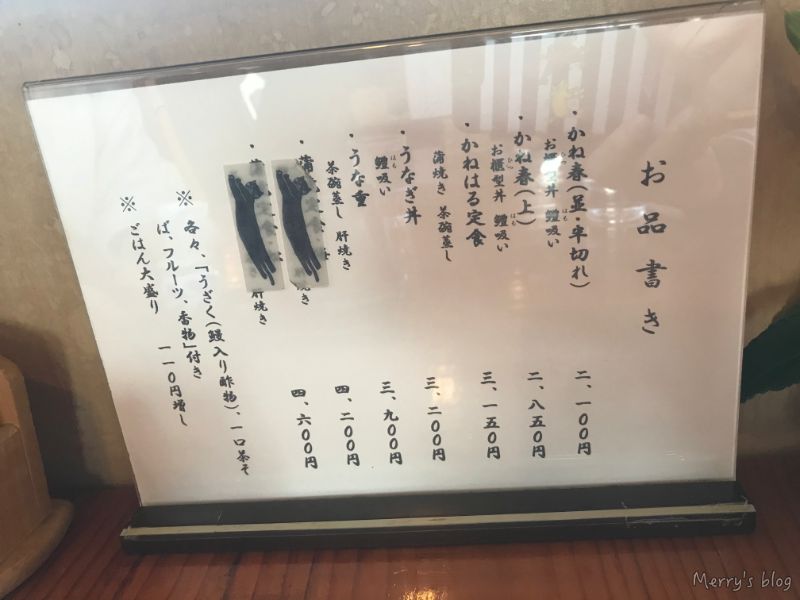 お品書き
・かね春（並・半切れ） 二、一〇〇円
お櫃型丼 鱧吸い
・かね春（上） 二、八五〇円
お櫃型丼 鱧吸い
・かねはる定食 三、一五〇円
蒲焼き 茶碗蒸し
・うなぎ丼 三、二〇〇円
鱧吸い
・うな重 三、九〇〇円
茶碗蒸し 肝焼き
・蒲 四、二〇〇円
焼き
・ 四、六〇〇円
肝焼き
※ 各々、「うざく（鰻入り酢物）、一口茶そ
ば、フルーツ、香物」付き
※ ごはん大盛り 一一〇円増し
Merry's blog